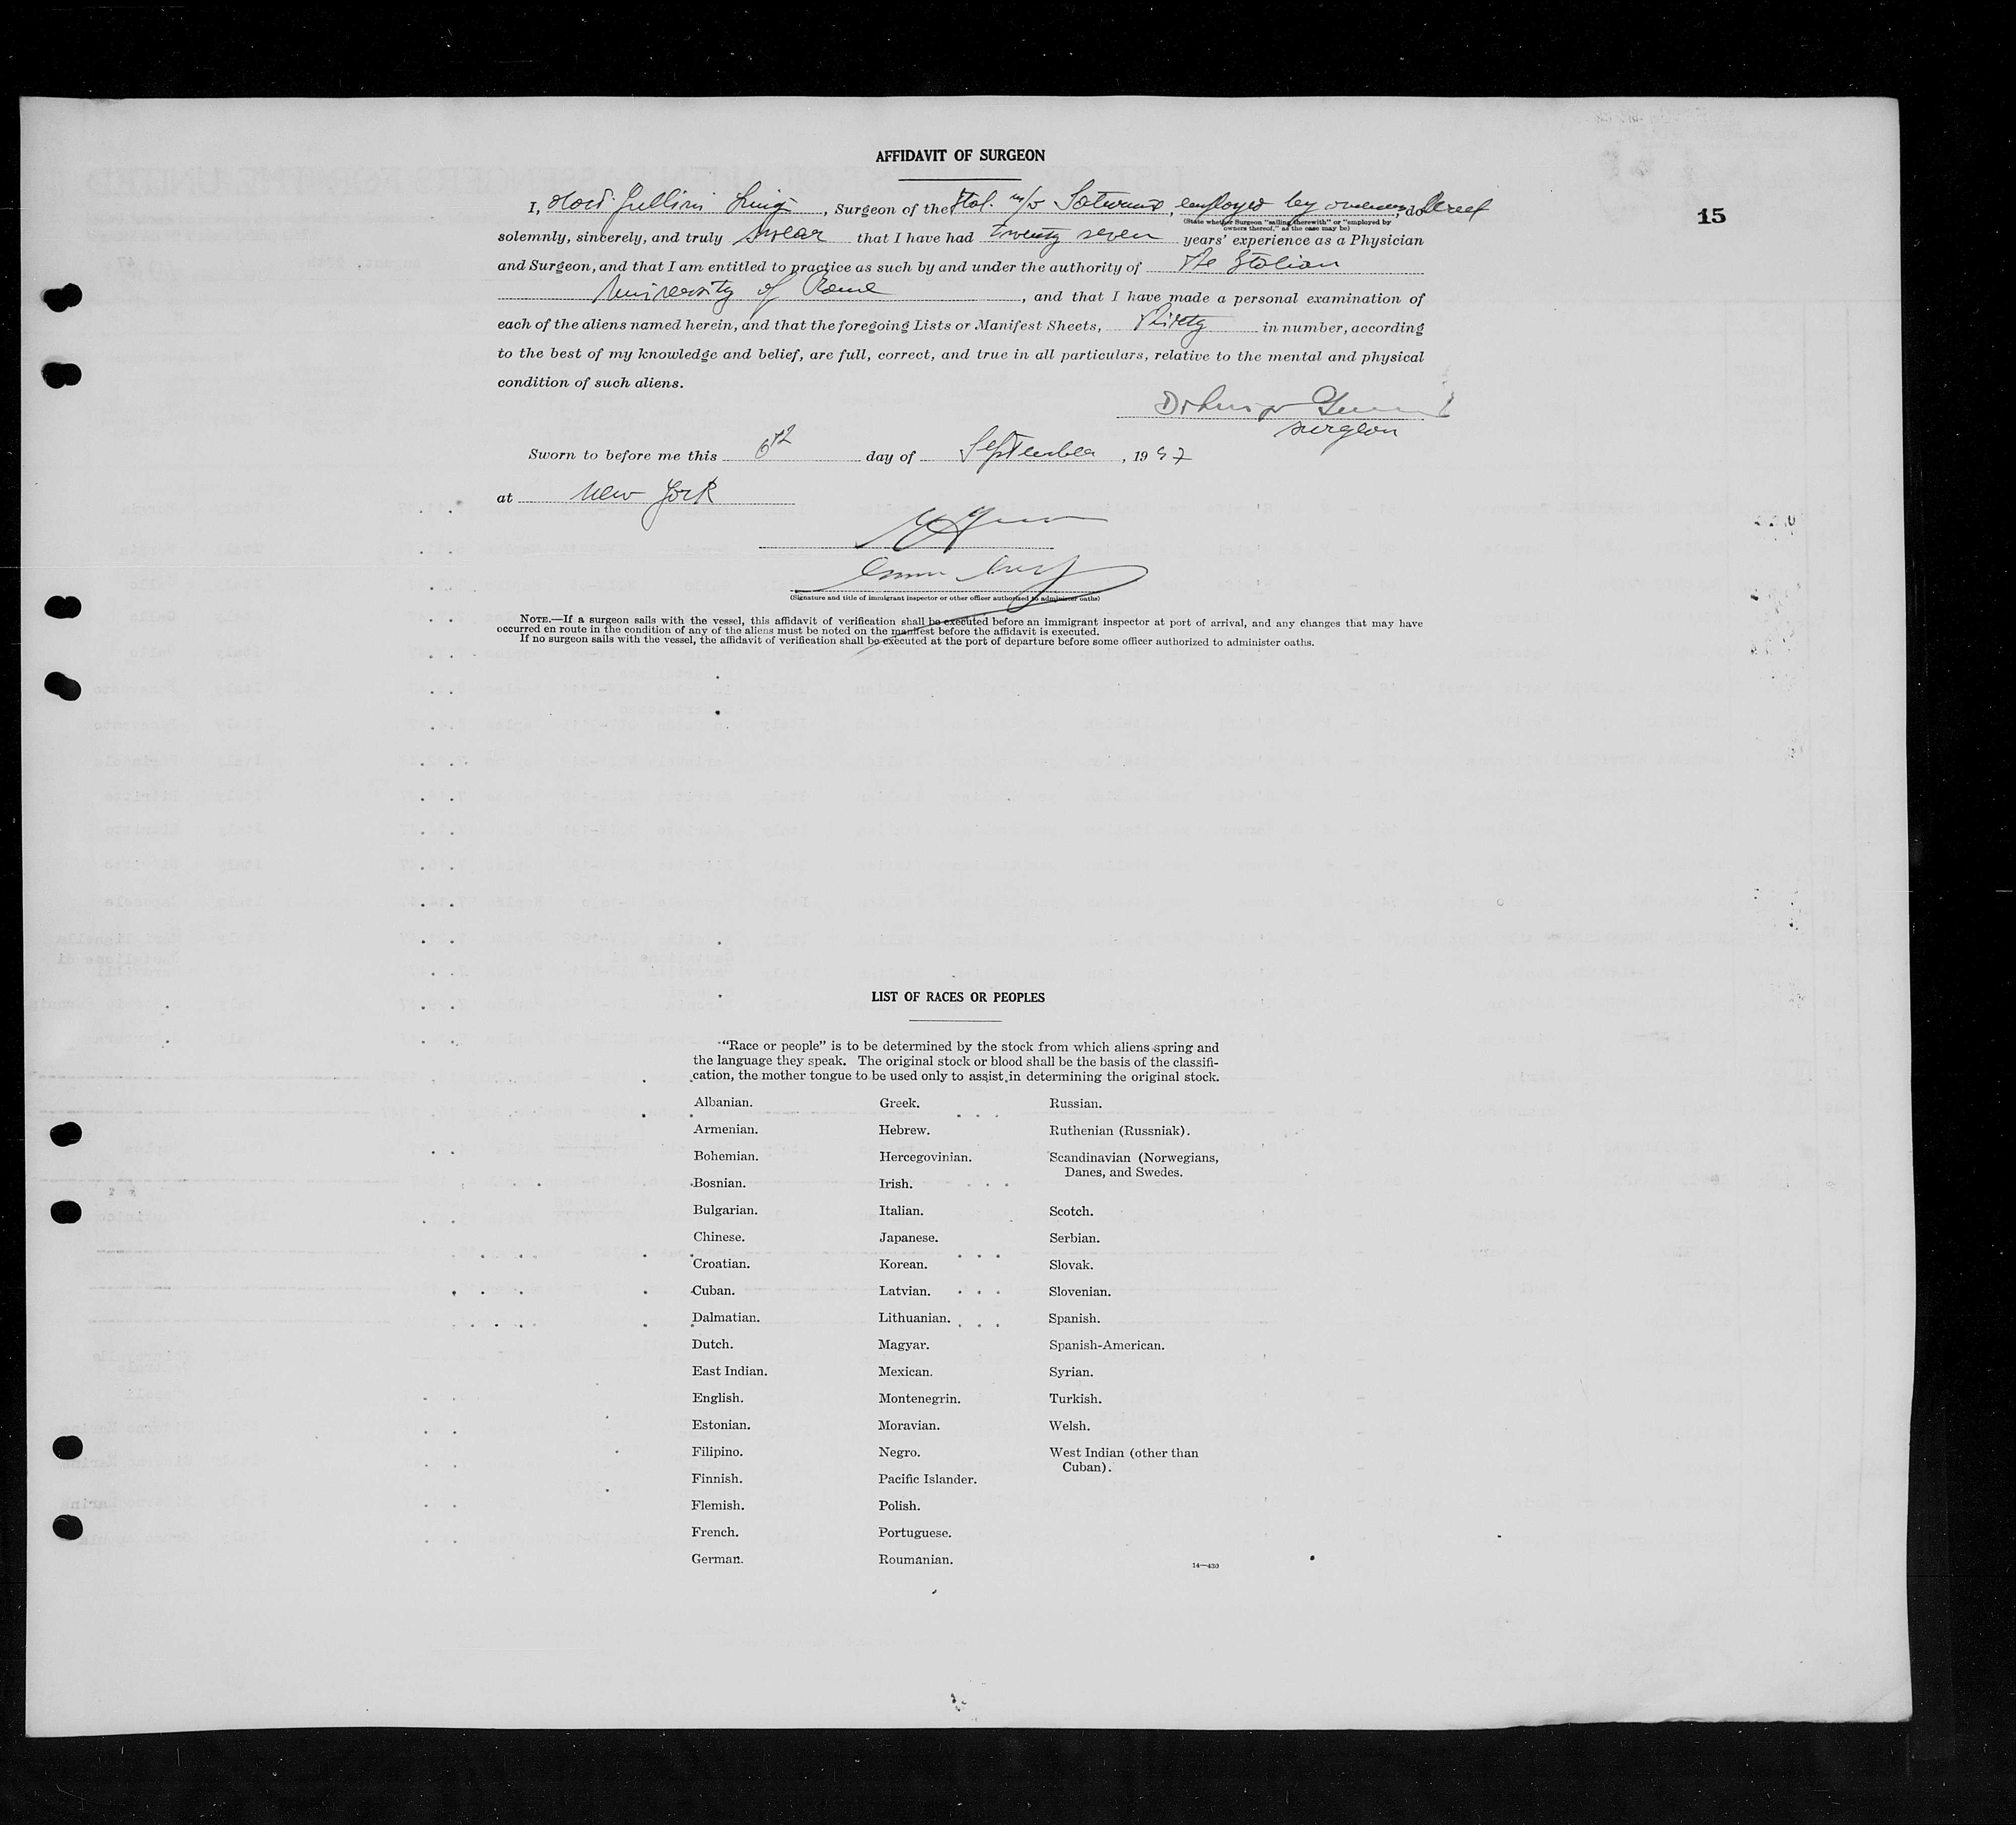 AFFIDAVIT OF SURGEON
15
I, Gullini Luigi, Surgeon of the Ital. m/v Saturnia, employed by owners, do
(State whether Surgeon "sailing therewith" or "employed by
owners thereof," as the case may be)
solemnly, sincerely, and truly swear that I have had twenty seven years' experience as a Physician
and Surgeon, and that I am entitled to practice as such by and under the authority of the Italian
University of Rome, and that I have made a personal examination of
each of the aliens named herein, and that the foregoing Lists or Manifest Sheets, thirty in number, according
to the best of my knowledge and belief, are full, correct, and true in all particulars, relative to the mental and physical
condition of such aliens.
surgeon
Sworn to before me this 6th day of September, 1947
at New York
(Signature and title of immigrant inspector or other officer authorized to administer oaths)
NOTE.—If a surgeon sails with the vessel, this affidavit of verification shall be executed before an immigrant inspector at port of arrival, and any changes that may have
occurred en route in the condition of any of the aliens must be noted on the manifest before the affidavit is executed.
If no surgeon sails with the vessel, the affidavit of verification shall be executed at the port of departure before some officer authorized to administer oaths.
LIST OF RACES OR PEOPLES
"Race or people" is to be determined by the stock from which aliens spring and
the language they speak. The original stock or blood shall be the basis of the classifi-
cation, the mother tongue to be used only to assist in determining the original stock.
Albanian.
Armenian.
Bohemian.
Bosnian.
Bulgarian.
Chinese.
Croatian.
Cuban.
Dalmatian.
Dutch.
East Indian.
English.
Estonian.
Filipino.
Finnish.
Flemish.
French.
German.
Greek.
Hebrew.
Hercegovinian.
Irish.
Italian.
Japanese.
Korean.
Latvian.
Lithuanian.
Magyar.
Mexican.
Montenegrin.
Moravian.
Negro.
Pacific Islander.
Polish.
Portuguese.
Roumanian.
Russian.
Ruthenian (Russniak).
Scandinavian (Norwegians,
Danes, and Swedes.
Scotch.
Serbian.
Slovak.
Slovenian.
Spanish.
Spanish-American.
Syrian.
Turkish.
Welsh.
West Indian (other than
Cuban).
14—430